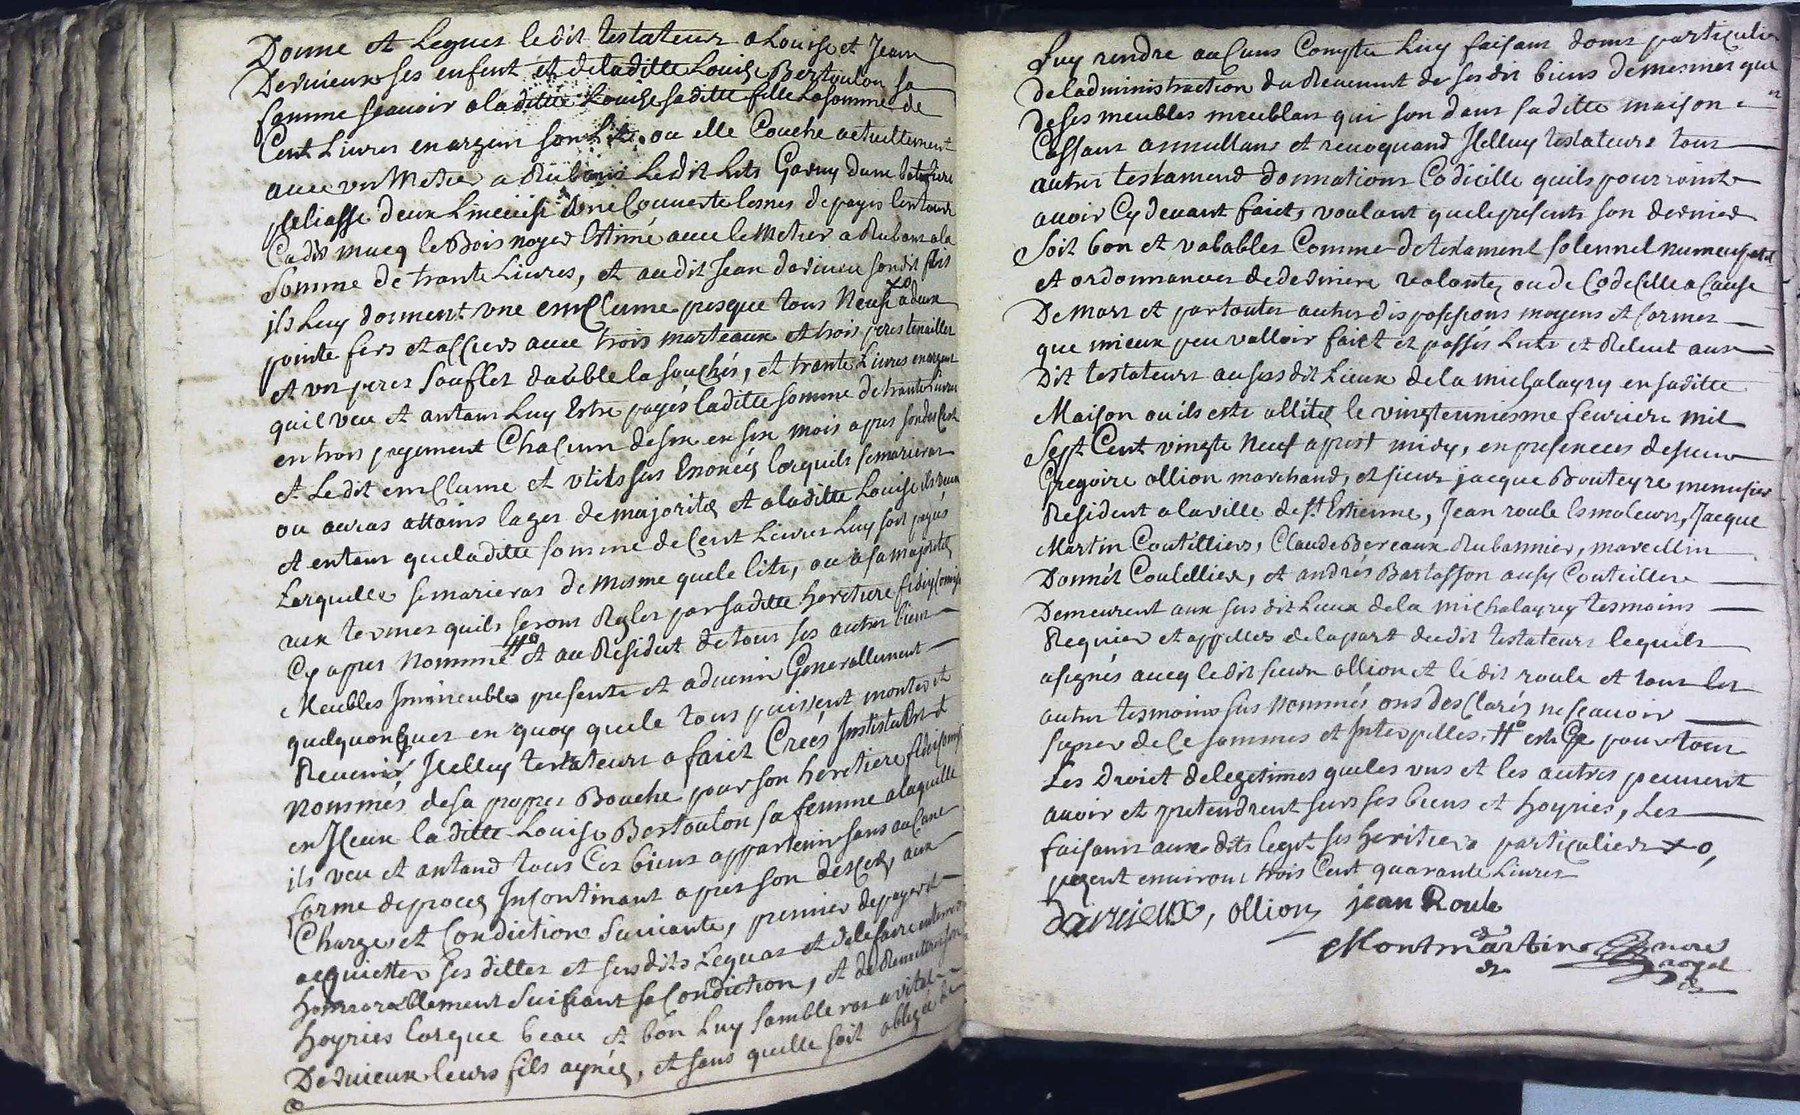 Donne et Legues ledit testateur a Louise et Jean
Dervieux ses enfent et deladitte Louise Bertoulon sa
famme scavoir a laditte Louise saditte fille La somme de
Cent Livres en argent son Lit ou elle Couche actuellement
avec un Metier a Rubans Ledit Lits Garny dune
paliasse deux Linceuls dune Couverte lesnes de payis
Cadis le Bois noyer Estimé avec le Metier a Rubans a la
somme de trante Livres, et audit Jean dervieu sondit fils
ils Luy donnent une emClume presque tous Neufs a deux
pointe fers et assiers avec trois marteaux et trois peres tenailles
et un peres soufflet double la souches, et trante Livres en argent
quil veu et antans Luy Estre payés laditte somme de trante Livres
en trois payement Chacun de six en six mois apres son
et Ledit emClume et utils sus Enoncés lorquils se marieras
ou auras attains lages de majorités et a laditte Louise ils veux
et entent que laditte somme de Cent Livres Luy soit payés
Lorquelles se marieras de mesme que le lits, ou a sa majorités
aux termes quils serons Regles par saditte heretiere
Cy apres Nommé et au Residut de tous ses autres bien
Meubles Immeubles presents et advenir Generallement
quelquonques en quoy que le tous puissent monter et
Revenir Icelluy testateurs a faict Créés Institués et
nommés de sa propres Bouche pour son heretiere
en Iceux laditte Louise Bertoulon sa femme a laquelle
ils veu et antand tous Ces biens appartenir sans aucune
forme de proces Incontinant apres son desces, aux
Charges et Condictions suivante, premier de payer et
acquietter ses dettes et sesdits Legats et de le faire enterrer
honnorablement suivant sa Condiction, et de Remettre son
hoyries lorque beau et bon Luy semble ras a
Dervieux leurs fils aynés, et sans quelle soit obligé de
Luy rendre aucuns Compte Luy faisant dont particulier
deladministraction du Revenent de sesdit biens de mesmes que
de ses meubles meublans qui son dans saditte maison
Cassant annullans et revoquand Icelluy testateurs tous
autres testament donnations Codicille quils pourroint
avoir Cy devant faict, voulant que le presents son dernier
soit bon et valables Comme de testament solennel
et ordonnances de derniere volontes ou de Codecille a Cause
De mort et par toutes autres dispossions moyens et formes
que mieux peu valloir faict et passés Luts et Releut aux
Dit testateurs au susdit Lieux de la michalayry en saditte
Maison ou ils este allités le vingtuniesme fevriere mil
Sept Cent vingte Neuf apres midy, en presences de sieur
Gregoire ollion marchand, et sieur jacque Bouteyre menusier
Resident a la ville de St Estienne, Jean roule Esmoleurs, Jacque
Martin Coutilliers, Claude Bereaux Rubannier, marcellin
Donnét Coutellier, et andrés Bartasson aussy Coutelliere
Demeurent aux sus dit Lieux de la michalayry tesmoins
Requier et appelles de la part dudit testateurs lequels
a signés avecq ledit sieur ollion et le dit roule et tous les
autres tesmoins sus Nommés ons desclarés ne scavoir
signer de Ce sommes et Interpelles, # este Ce pour tous
Les Droict de legetimes que les uns et les autres peuvent
avoir et pretendrent sur ses biens et hoyries, Les
faisant aux dits legt ses heritiers particuliers x o,
environ trois Cent quarante Livres
Dervieux, ollion jean Roule
Montmartin